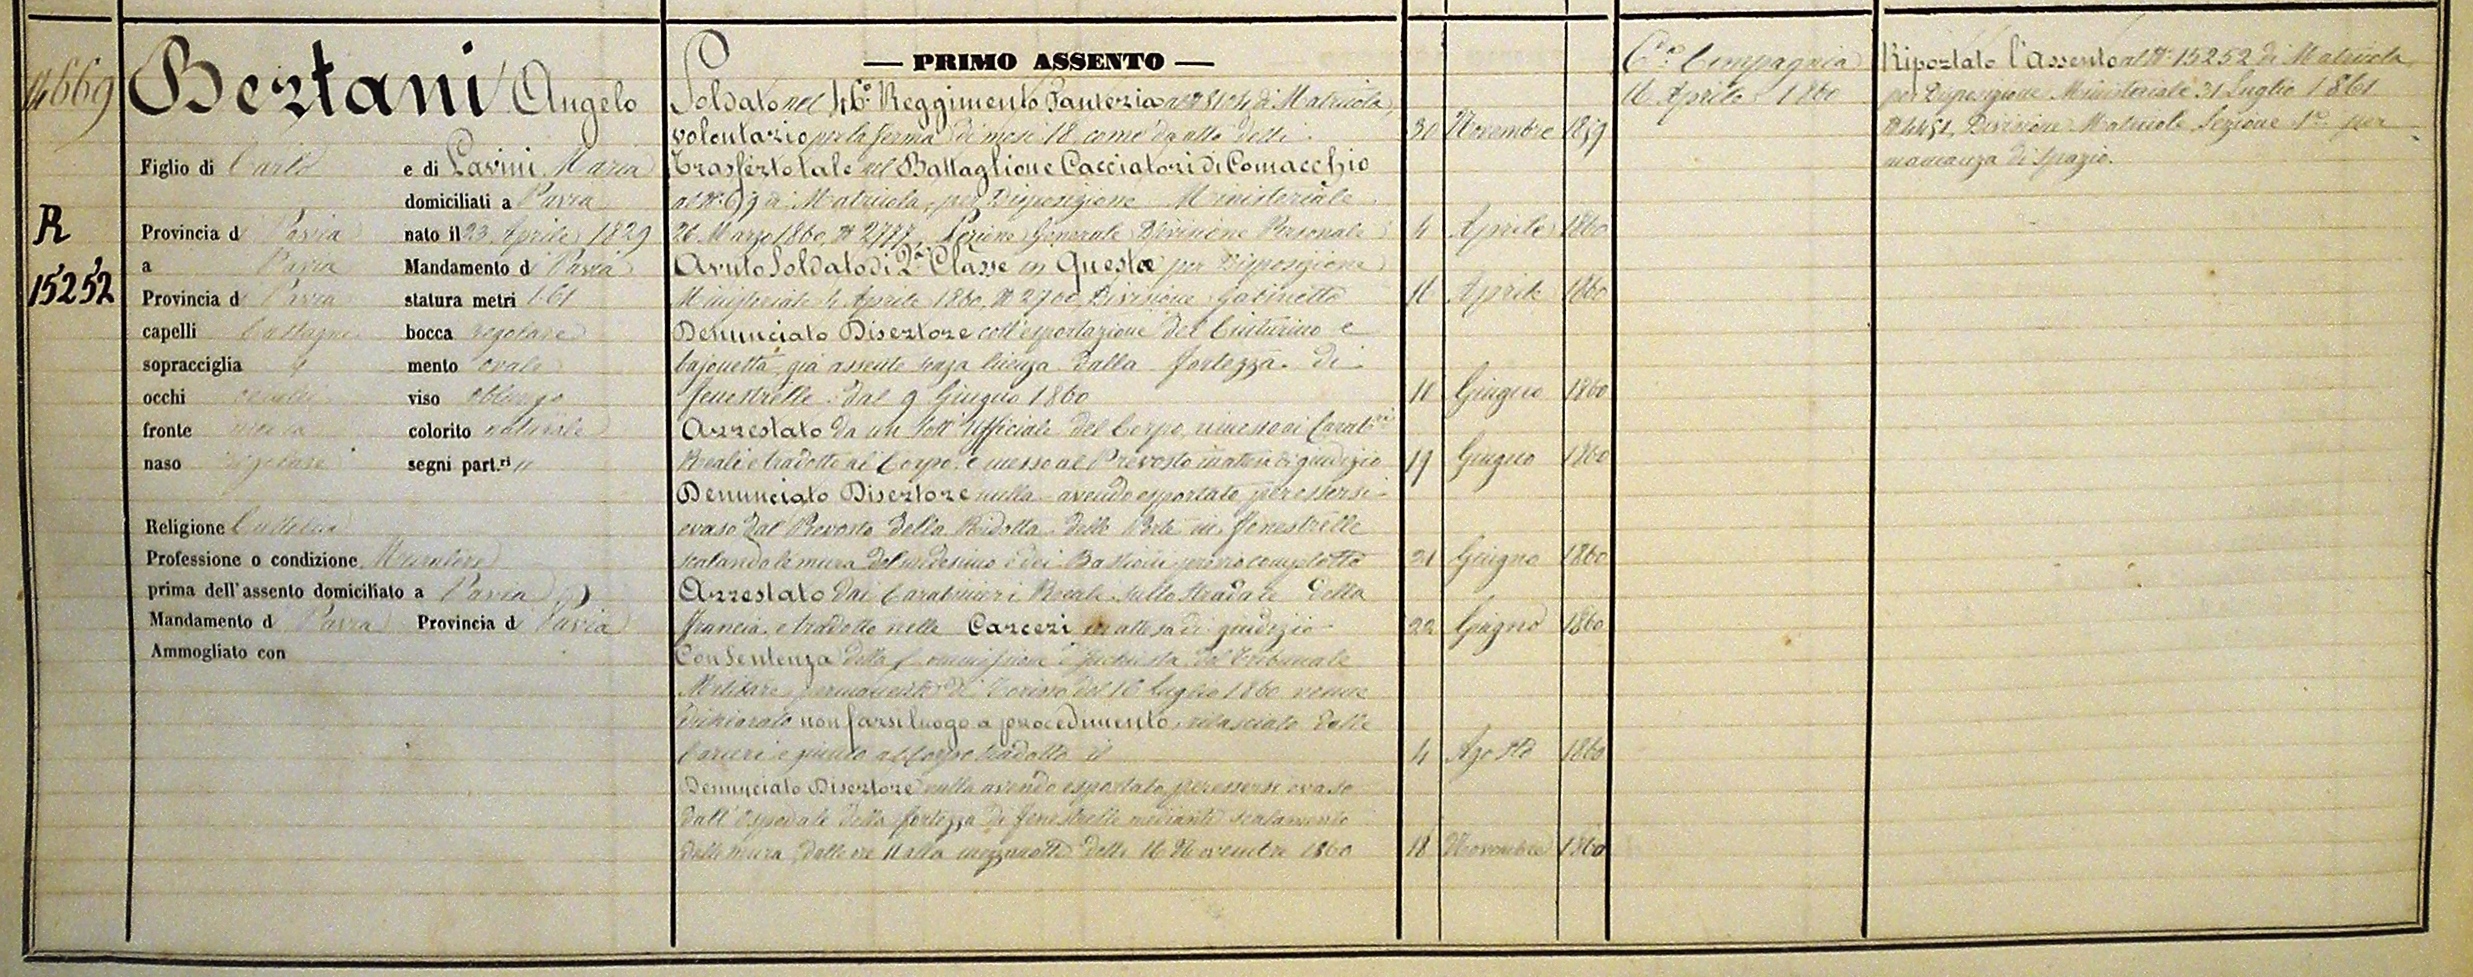 4669
R
15252
Bertani Angelo
Figlio di Carlo e di Lavini Maria
domiciliati a Pavia
Provincia di Pavia nato il 23 Aprile 1829
a Pavia Mandamento di Pavia
Provincia di Pavia statura metri 1.61
capelli Castagni bocca regolare
sopracciglia id mento ovale
occhi viso oblungo
fronte colorito naturale
naso regolare segni part.ri "
Religione Cattolica
Professione o condizione Muratore
prima dell'assento domiciliato a Pavia
Mandamento di Pavia Provincia di Pavia
Ammogliato con
— PRIMO ASSENTO —
Soldato nel 46° Reggimento Fanteria al N° di Matricola
volontario per la ferma di mesi 18 come da atto delli 30 Novembre 1859
Trasferto tale nel Battaglione Cacciatori di Comacchio
al N° di Matricola, per Disposizione Ministeriale
26 Marzo 1860, N° Sezione Generale Divisione Personale 4 Aprile 1860
Avuto Soldato di 2a Classe in Queste per Disposizione
Ministeriale 4 Aprile 1860, N° 2700 Divisione Gabinetto 16 Aprile 1860
Denunciato Disertore coll'esportazione del Cinturino e
bajonetta, già assente senza licenza dalla fortezza di
fenestrelle dal 9 Giugno 1860 10 Giugno 1860
Arrestato da un Sott'Ufficiale del Corpo, rimesso ai Carab.ri
Reali e tradotto al Corpo, e messo al Prevosto in attesa di giudizio 19 Giugno 1860
Denunciato Disertore nulla avendo esportato, per essersi
evaso dal Prevosto della Ridotta delle Porte in fenestrelle
scalando le mura del medesimo e dei Bastioni previo complotto 21 Giugno 1860
Arrestato dai Carabinieri Reali sullo stradale della
francia, e tradotto nelle Carceri in attesa di giudizio 22 Giugno 1860
Con Sentenza della Commissione d'Inchiesta del Tribunale
Militare permanente di Torino del 16 Luglio 1860 venne
dichiarato non farsi luogo a procedimento, rilasciato dalle
Carceri e giunto al Corpo tradotto il 4 Agosto 1860
Denunciato Disertore nulla avendo esportato, per essersi evaso
dall'Ospedale della fortezza di fenestrelle mediante scalamento
delle mura, dalle ore 11 alla mezzanotte delli 16 Novembre 1860 18 Novembre 1860
Compagnia
16 Aprile 1860
Riportato l'Assento al N° 15252 di Matricola
per Disposizione Ministeriale 31 Luglio 1861
N° 4451, Divisione Matricole Sezione 1a per
mancanza di spazio.